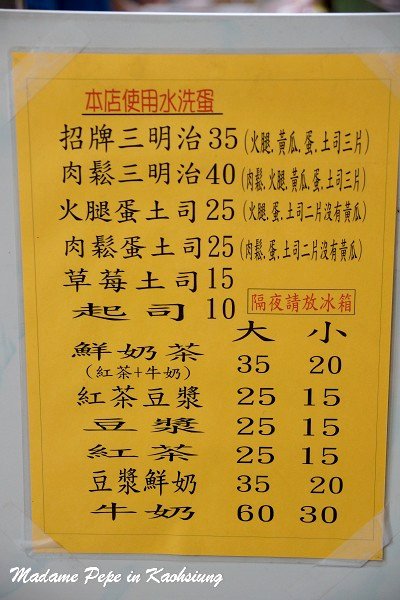 本店使用水洗蛋
招牌三明治35(火腿.黃瓜.蛋.土司三片)
肉鬆三明治40(肉鬆.火腿.黃瓜.蛋.土司三片)
火腿蛋土司25(火腿.蛋.土司二片沒有黃瓜)
肉鬆蛋土司25(肉鬆.蛋.土司二片沒有黃瓜)
草莓土司15
起司10 隔夜請放冰箱
大 小
鮮奶茶 35 20
(紅茶+牛奶)
紅茶豆漿 25 15
豆漿 25 15
紅茶 25 15
豆漿鮮奶 35 20
牛奶 60 30
Madame Pepe in Kaohsiung